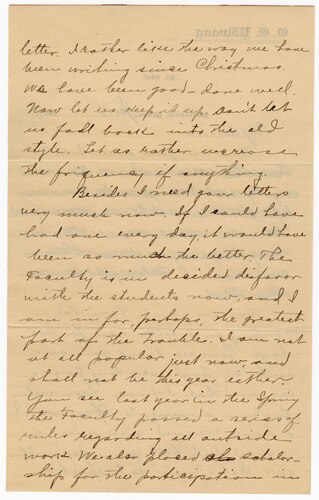 letter. I rather like the way we have
been writing since Christmas.
We have been good - done well.
Now let us keep it up. Don't let
us fall back into the old
style. Let us rather increase
the friquency if anything.
Besides I need your letters
very much now. If I could have
had one every day, it would have
been so much the better. The
Faculty is in decided disfavor
with the students now, and I
am in for, perhaps, the greatest
part of the trouble. I am not
at all popular just now, and
shall not be this year either.
You see last year in the Spring
the Faculty passed a series of
rules regarding all outside
work. We also placed scholar-
ship for the participation in